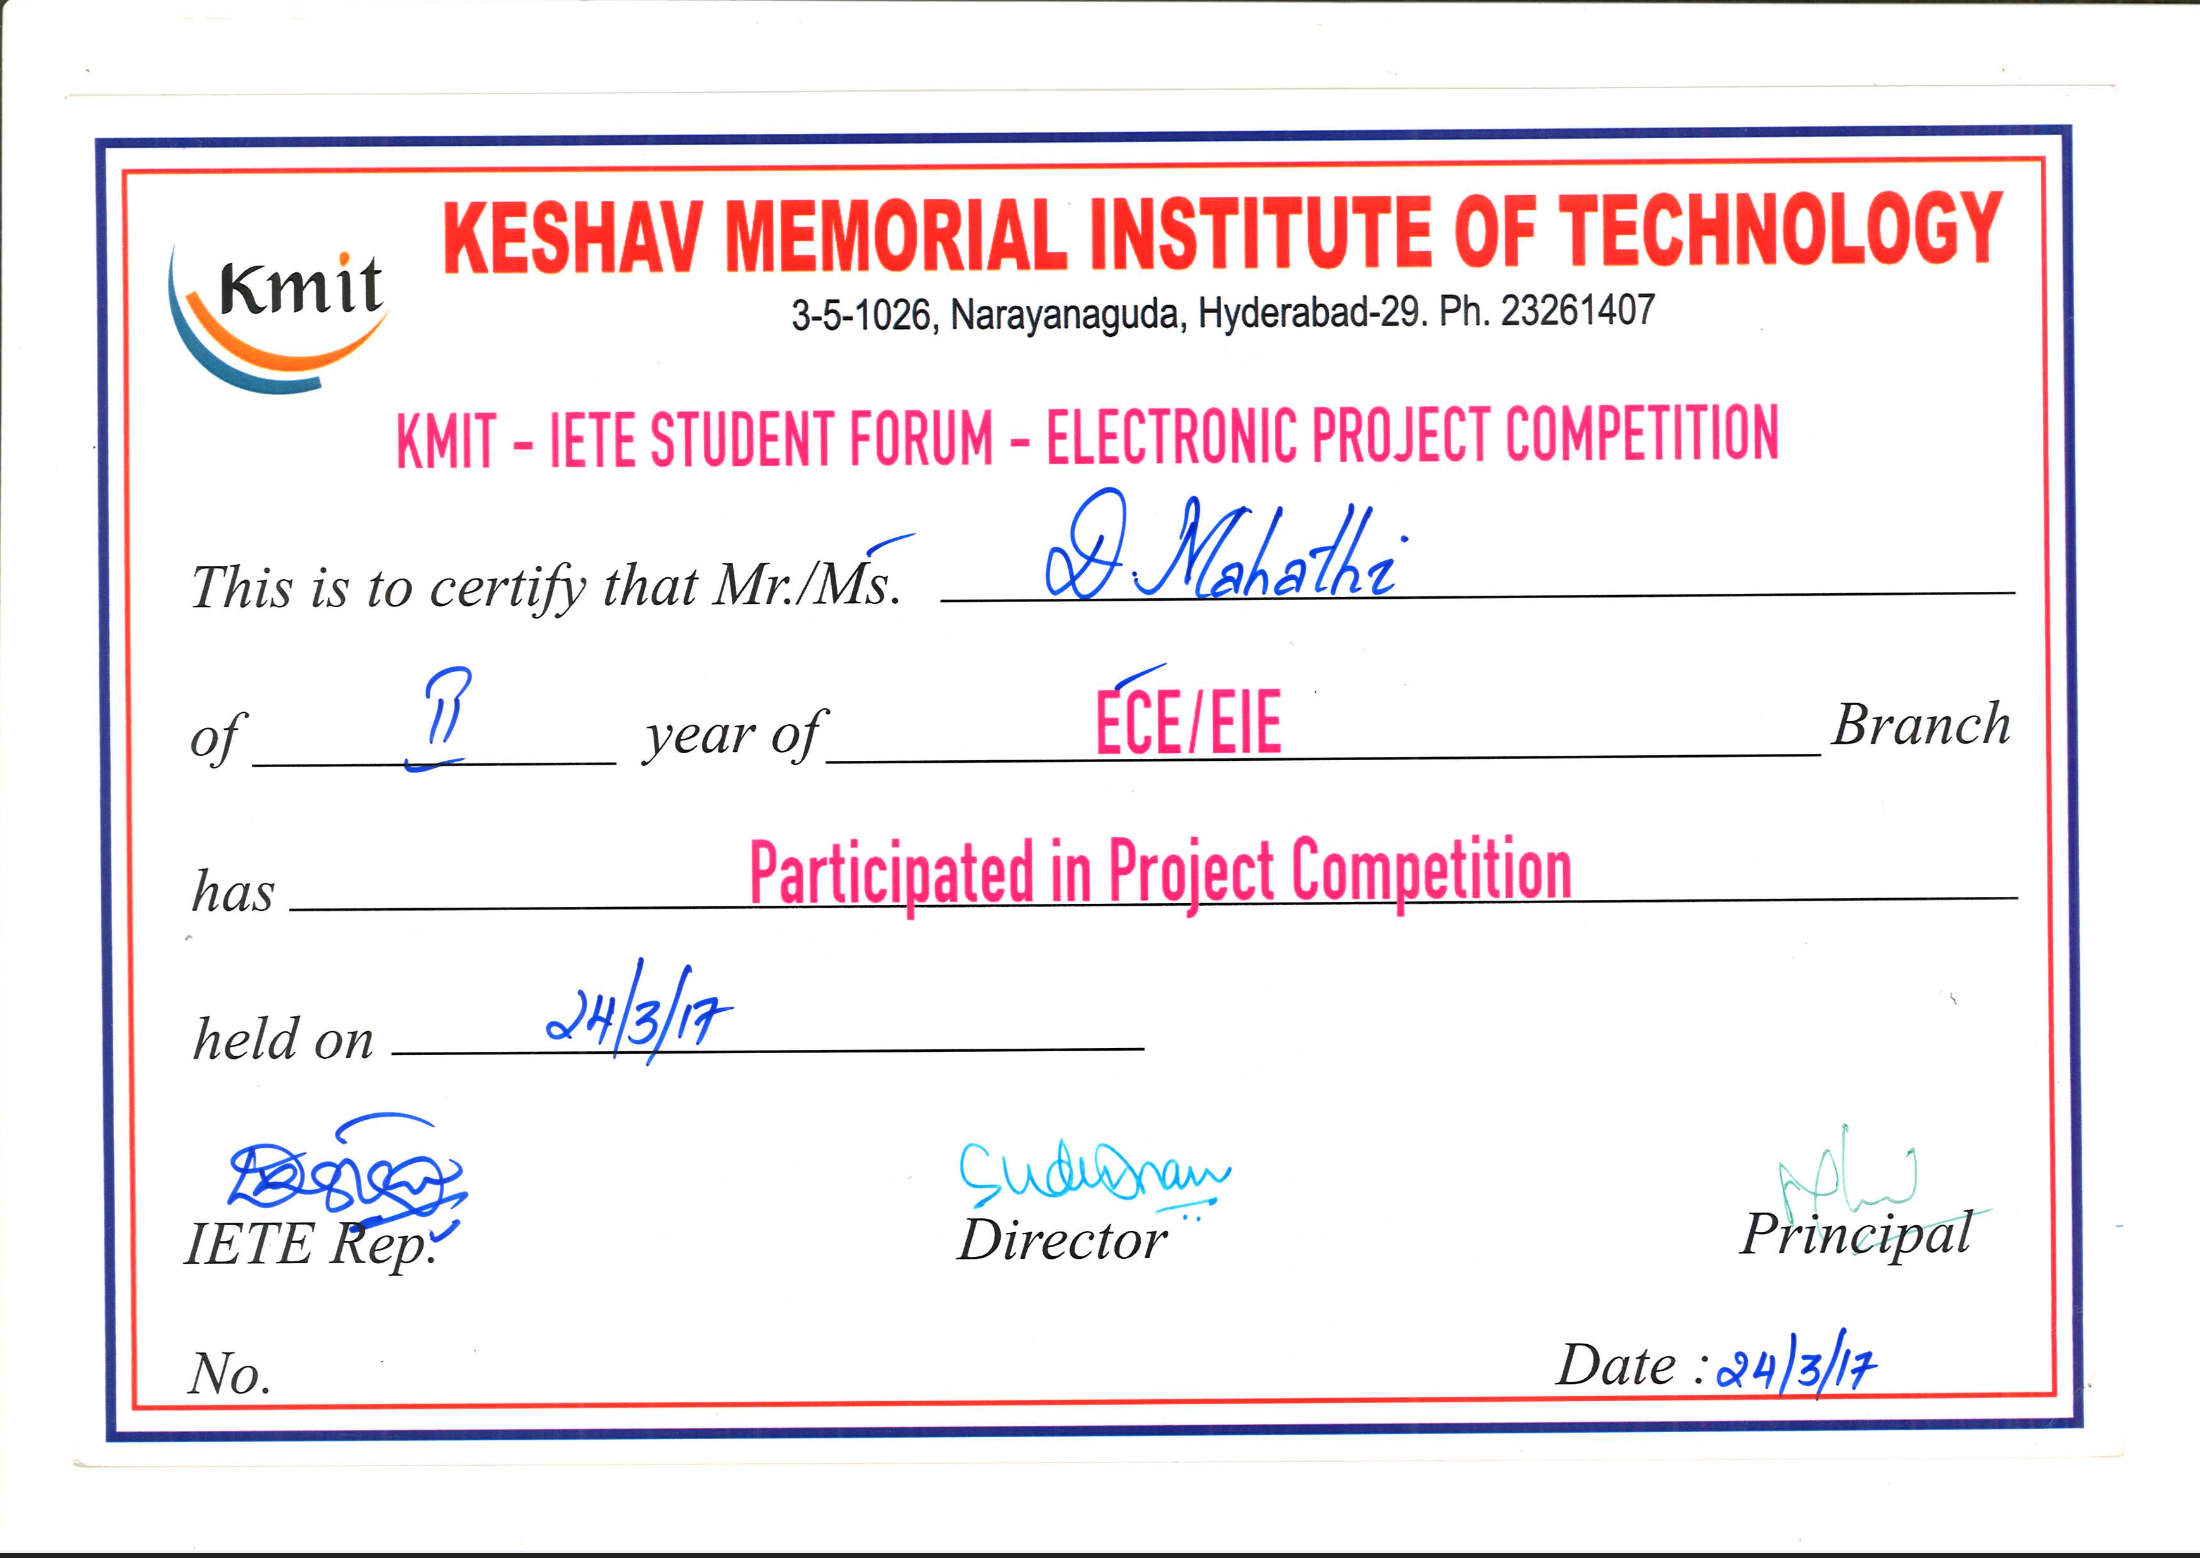 Kmit
KESHAV MEMORIAL INSTITUTE OF TECHNOLOGY
3-5-1026, Narayanaguda, Hyderabad-29. Ph. 23261407
KMIT - IETE STUDENT FORUM - ELECTRONIC PROJECT COMPETITION
This is to certify that Mr./Ms. D. Mahathi
of II year of ECE/EIE Branch
has Participated in Project Competition
held on 24/3/17
IETE Rep. Director Principal
No. Date : 24/3/17